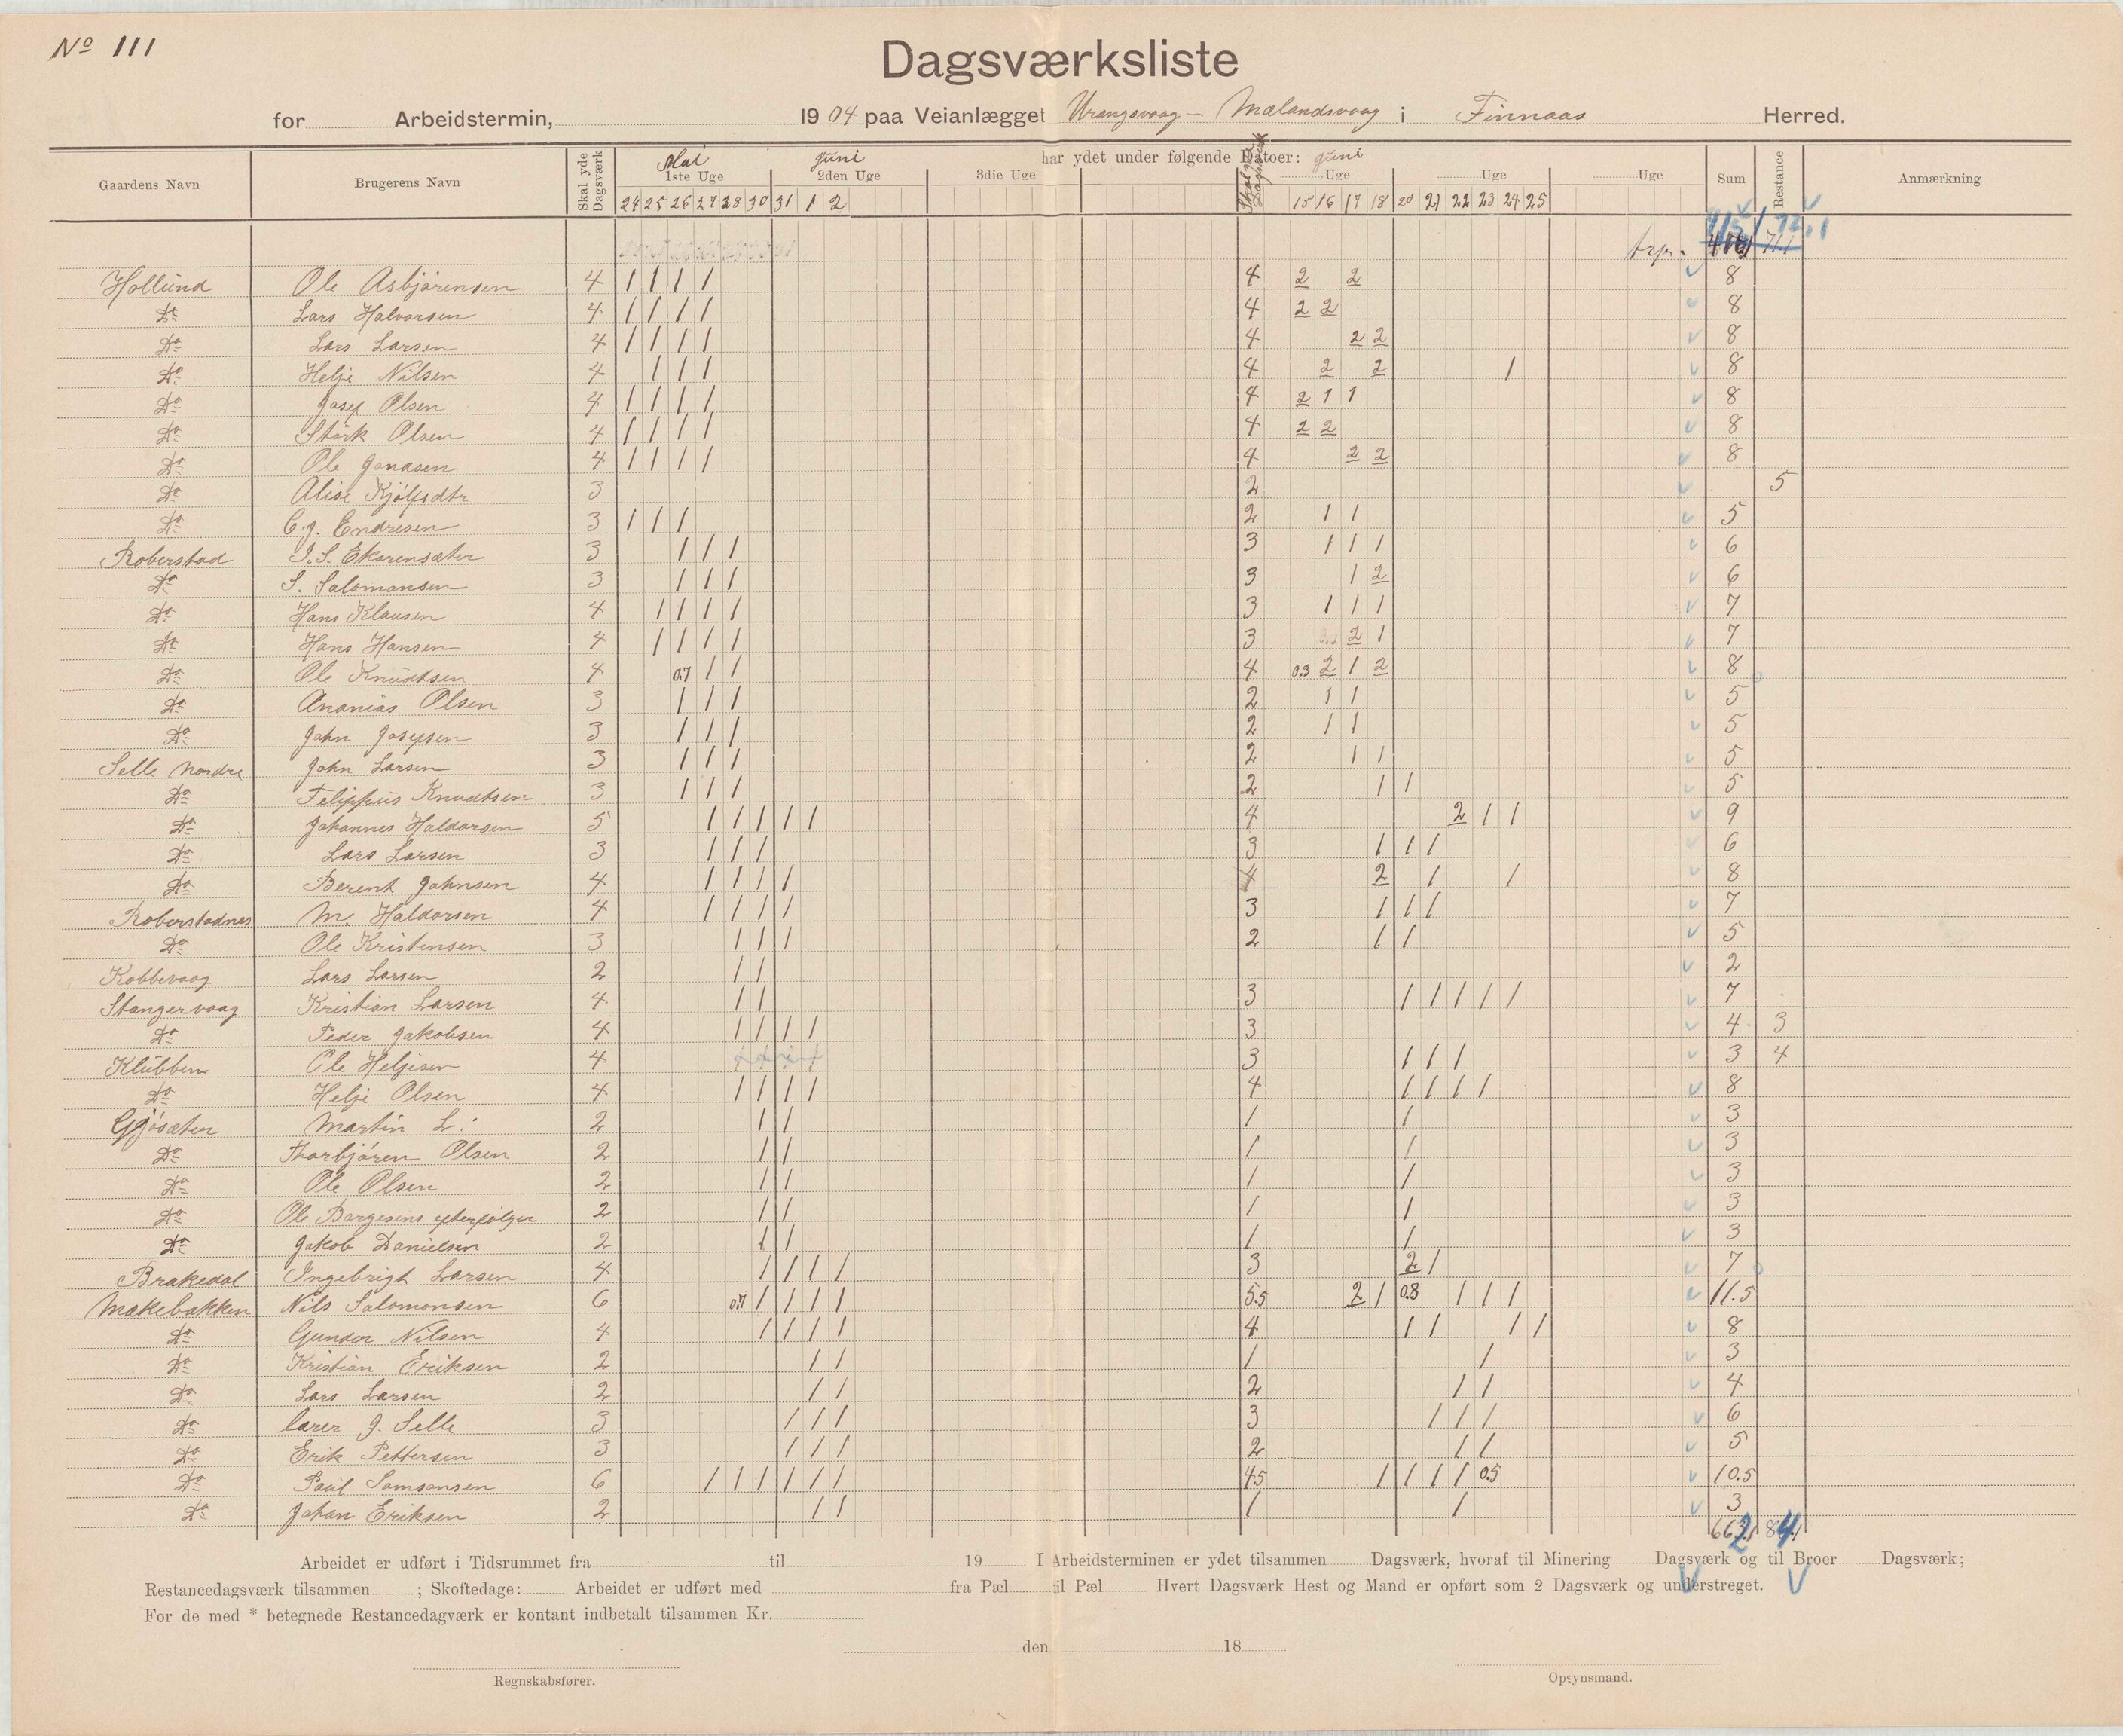 No 111
Dagsværksliste
for Arbeidstermin, 1904 paa Veianlægget Urangsvaag - Mælandsvaag i Finnaas Herred.
Gaardens Navn Brugerens Navn Skal yde Dagsværk Mai 1ste Uge Juni 2den Uge 3die Uge har ydet under følgende Datoer: Juni Uge Uge Uge Sum Restance Anmærkning
24 25 26 27 28 30 31 1 2 15 16 17 18 20 21 22 23 24 25
Hollund Ole Asbjørensen 4 1 1 1 1 4 2 2 8
Do Lars Halvorsen 4 1 1 1 1 4 2 2 8
Do Lars Larsen 4 1 1 1 1 4 2 2 8
Do Helje Nilsen 4 1 1 1 4 2 2 1 8
Do Josef Olsen 4 1 1 1 1 4 2 1 1 8
Do Størk Olsen 4 1 1 1 1 4 2 2 8
Do Ole Jonasen 4 1 1 1 1 4 2 2 8
Do Alise Kjølfsdtr 3 2 5
Do C. J. Endresen 3 1 1 1 2 1 1 5
Roberstad I. S. Ekorensæter 3 1 1 1 3 1 1 1 6
Do S. Salomonsen 3 1 1 1 3 1 2 6
Do Hans Klausen 4 1 1 1 1 3 1 1 1 7
Do Hans Hansen 4 1 1 1 1 3 2 1 7
Do Ole Knudtsen 4 0.7 1 1 4 0.3 2 1 2 8
Do Ananias Olsen 3 1 1 1 2 1 1 5
Do John Josefsen 3 1 1 1 2 1 1 5
Selle Nordre John Larsen 3 1 1 1 2 1 1 5
Do Filippus Knudtsen 3 1 1 1 2 1 1 5
Do Johannes Haldorsen 5 1 1 1 1 1 4 2 1 1 9
Do Lars Larsen 3 1 1 1 3 1 1 1 6
Do Berent Johnsen 4 1 1 1 1 4 2 1 1 8
Roberstadnes M. Haldorsen 4 1 1 1 1 3 1 1 1 7
Do Ole Kristensen 3 1 1 1 2 1 1 5
Kobbevaag Lars Larsen 2 1 1 2
Stangervaag Kristian Larsen 4 1 1 3 1 1 1 1 1 7
Do Peder Jakobsen 4 1 1 1 1 3 4 3
Klubben Ole Heljesen 4 3 1 1 1 3 4
Do Helje Olsen 4 1 1 1 1 4 1 1 1 1 8
Gjøsæter Martin L. 2 1 1 1 1 3
Do Thorbjøren Olsen 2 1 1 1 1 3
Do Ole Olsen 2 1 1 1 1 3
Do Ole Børgesens efterfølger 2 1 1 1 1 3
Do Jakob Danielsen 2 1 1 1 1 3
Brakedal Ingebrigt Larsen 4 1 1 1 1 3 2 1 7
Mækebakken Nils Salomonsen 6 0.7 1 1 1 1 5.5 2 1 0.8 1 1 1 11.5
Do Gunder Nilsen 4 1 1 1 1 4 1 1 1 1 8
Do Kristian Eriksen 2 1 1 1 1 3
Do Lars Larsen 2 1 1 2 1 1 4
Do lærer J. Selle 3 1 1 1 3 1 1 1 6
Do Erik Pettersen 3 1 1 1 2 1 1 5
Do Paul Samsonsen 6 1 1 1 1 1 1 4.5 1 1 1 1 0.5 10.5
Do Johan Eriksen 2 1 1 1 1 3
Arbeidet er udført i Tidsrummet fra til 19 I Arbeidsterminen er ydet tilsammen Dagsværk, hvoraf til Minering Dagsværk og til Broer Dagsværk;
Restancedagsværk tilsammen ; Skoftedage: Arbeidet er udført med fra Pæl til Pæl Hvert Dagsværk Hest og Mand er opført som 2 Dagsværk og understreget.
For de med * betegnede Restancedagværk er kontant indbetalt tilsammen Kr.
den 18
Regnskabsfører. Opsynsmand.